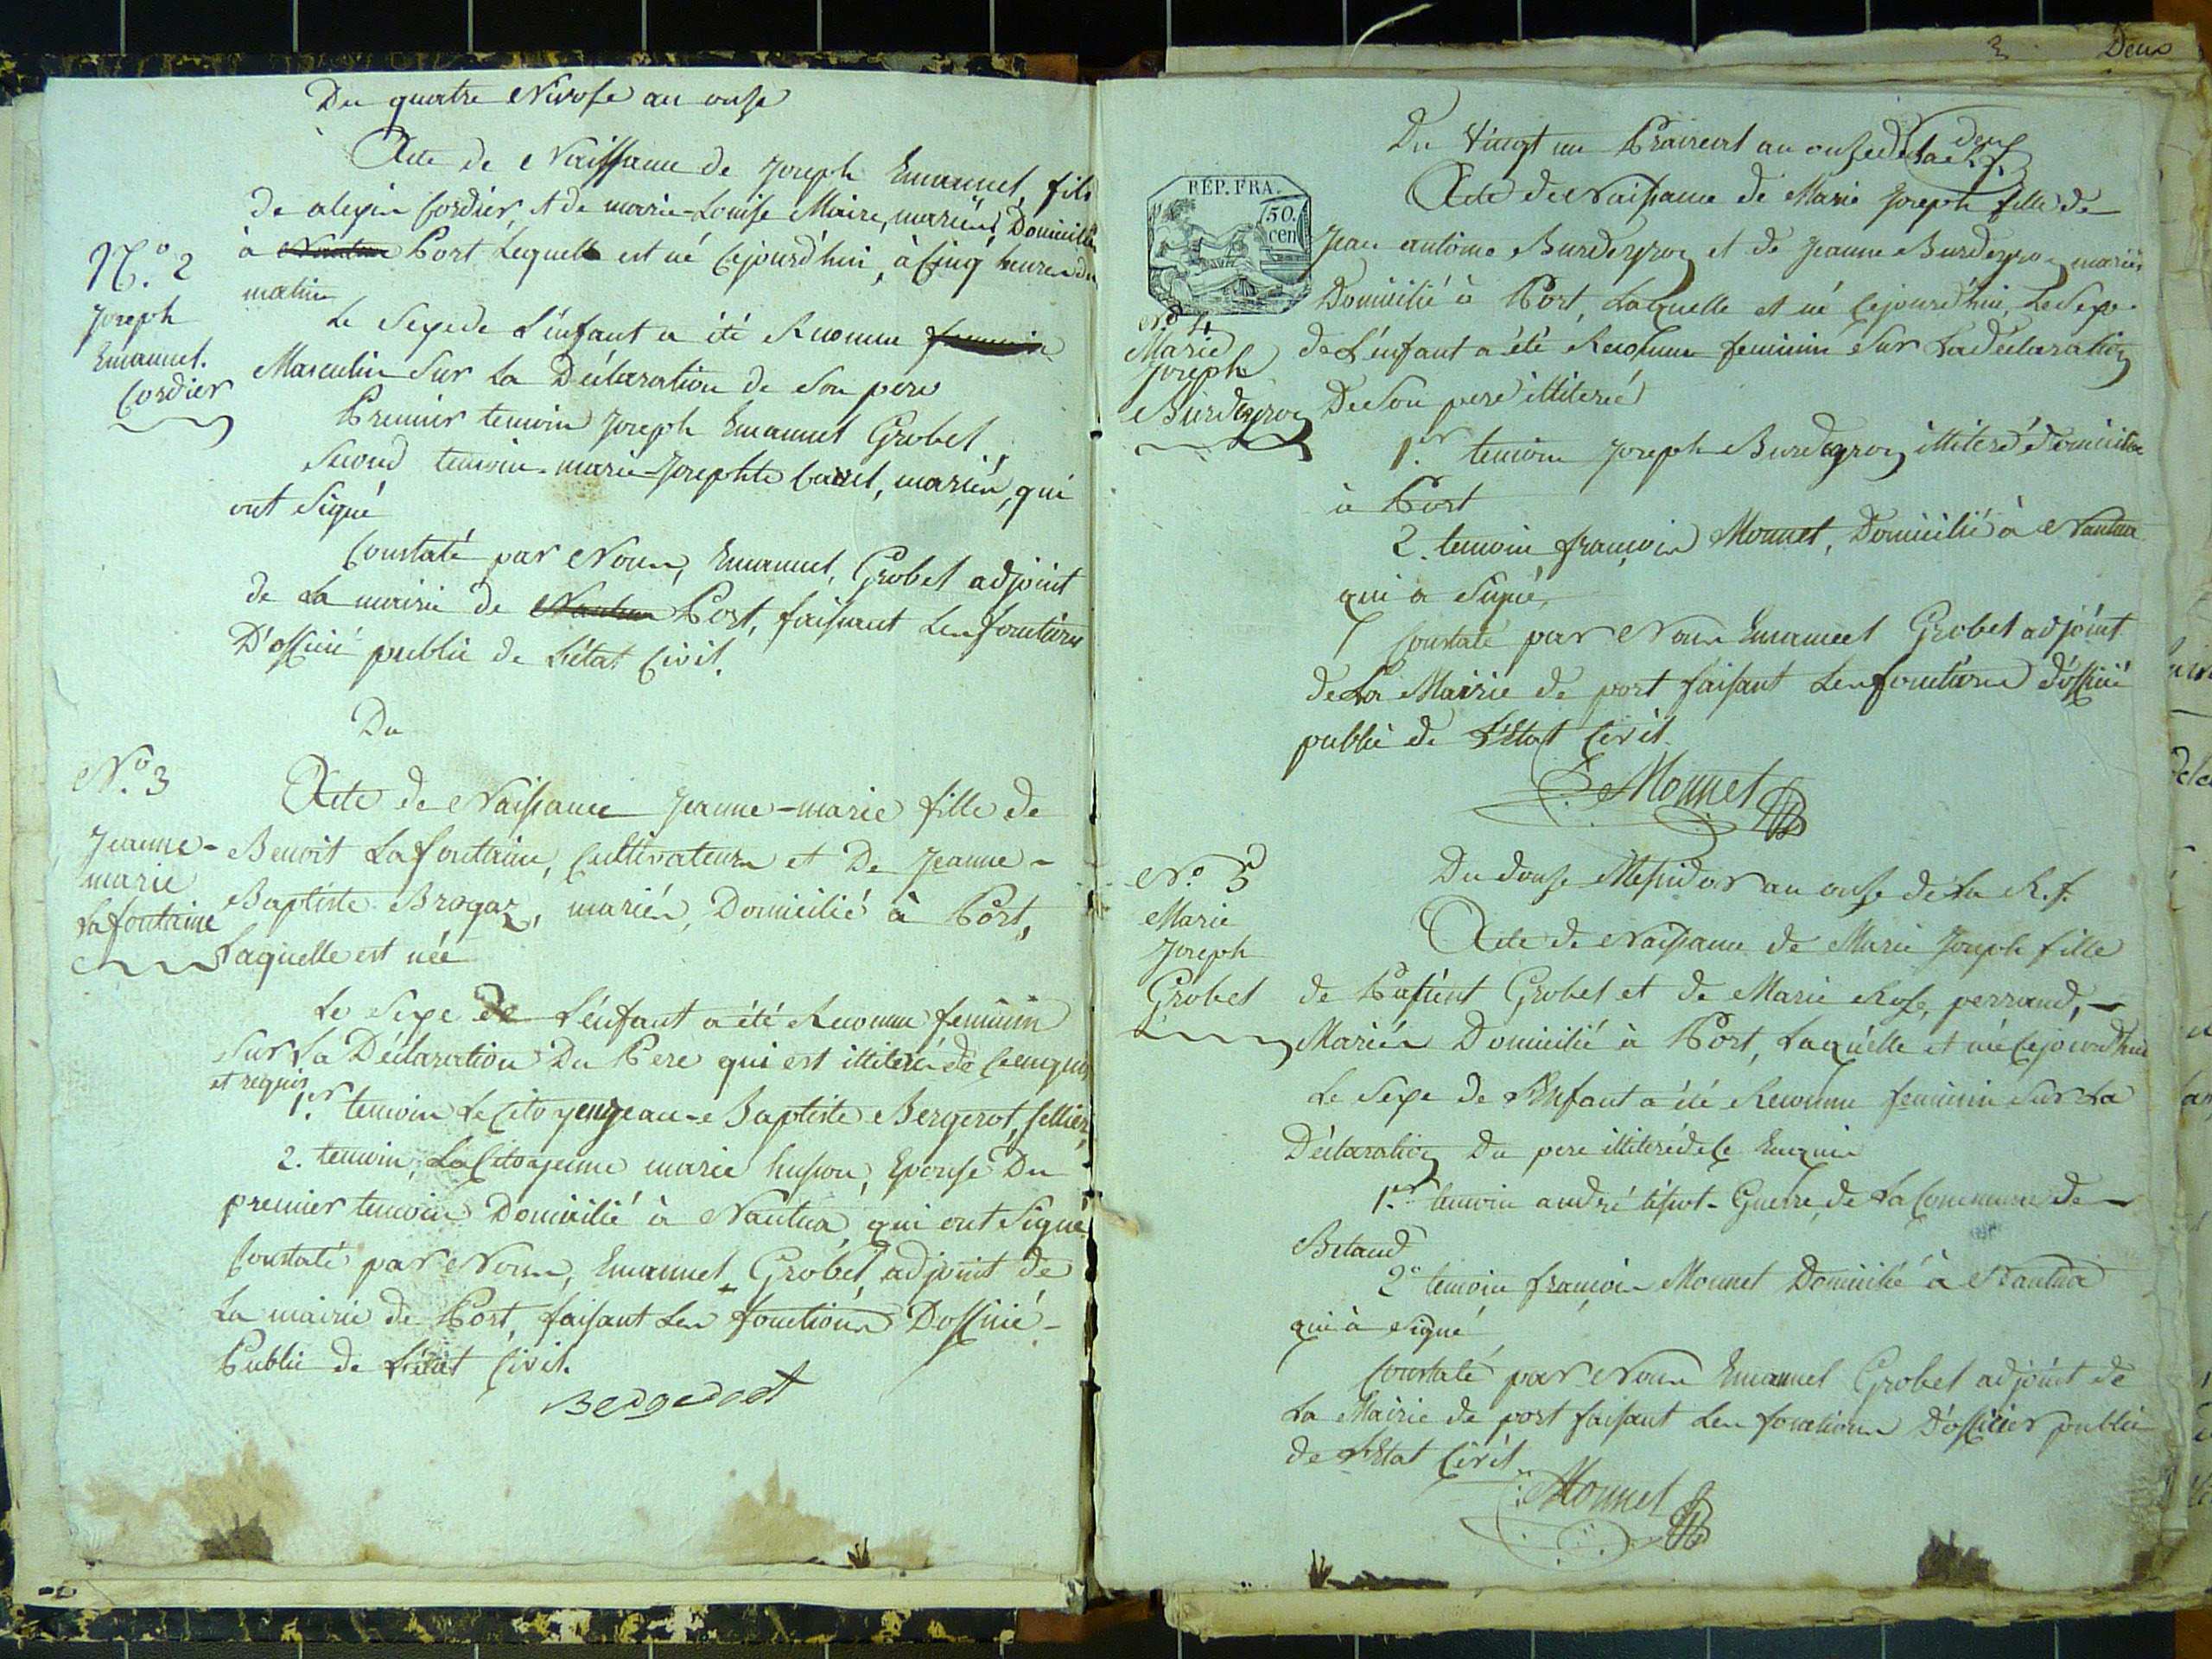 Du quatre Nivose an onse
Acte de Naissance de Joseph Emanuel, fils
de alexis Cordier, et de marie-Louise Maire, mariés, Domicilié
à Nantua Port Lequelle est né cejourd'hui, à Cinq heures du
matin
N.º 2
Joseph
Emanuel.
Cordier
Le Sexe de L'enfant a été Reconnu feminin
Masculin Sur La Déclaration de Son pere
Premier temoin Joseph Emanuel Grobel,
Second temoin marie-Josephte, mariés, qui
ont Signé
Constaté par Nous, Emanuel, Grobel adjoint
de La mairie de Nantua Port, faisant Les fonctions
D'officié public de L'état Civil.
Du
N.º 3
Jeanne-
marie
Lafontaine
Acte de Naissance Jeanne-marie fille de
Benoit Lafontaine, Cultivateurs et De Jeanne-
Baptiste Brogaz, mariés, Domicilié à Port,
Laquelle est née
Le Sexe de L'enfant a été Reconnu feminin
Sur La Déclaration Du Pere qui est illiteré de ce enquis
et requis
1.er temoin Le Citoyen Jean-Baptiste Bergerot, sellier,
2. temoin, La Citoyenne marie husson, Epouse Du
premier temoin Domicilié à Nantua, qui ont Signé
Constaté par Nous, Emanuel Grobel, adjoint de
La mairie de Port, faisant Les fonctions D'officié-
Public de L'état Civil.
Bergerot
3 Deux
Du Vingt un Prairéal an onse de La R. f.
deux
REP. FRA.
50.
cen
Acte de Naissance de Marie Joseph fille de
Jean antoine Burdeyroy et de Jeanne Burdeyroy mariés
Domicilié à Port, Laquelle et né cejourd'hui, Le Sexe
de L'enfant a été Reconnu feminin Sur La déclaration
De Son pere illiteré
Nº 4
Marie
Joseph
Burdeyroy
1.er temoin Joseph Burdeyroy illiteré domicilié
à Port
2. temoin françois Monnet, Domicilié à Nantua
qui a Signé,
Constaté par Nous Emanuel Grobel adjoint
de La Mairie de port faisant Les fonctions d'officié
public de L'Etat Civil.
F. Monnet
Nº 5
Marie
Joseph
Grobel
Du douse Messidor an onse de La R. f.
Acte de Naissance de Marie Joseph fille
de Patient Grobel et de Marie Rose, perrand,
Mariés Domicilié à Port, Laquelle et né cejourd'hui
Le Sexe de L'Enfant a été Reconnu feminin Sur La
Déclaration Du pere illiteré de Ce Enquis
1.er temoin andré Guerre, de La Commune de
Betand
2e temoin françois Monnet Domicilié à Nantua
qui à Signé
Constaté par Nous Emanuel Grobel adjoint de
La Mairie de port faisant Les fonctions D'officier public
de L'Etat Civil
F. Monnet